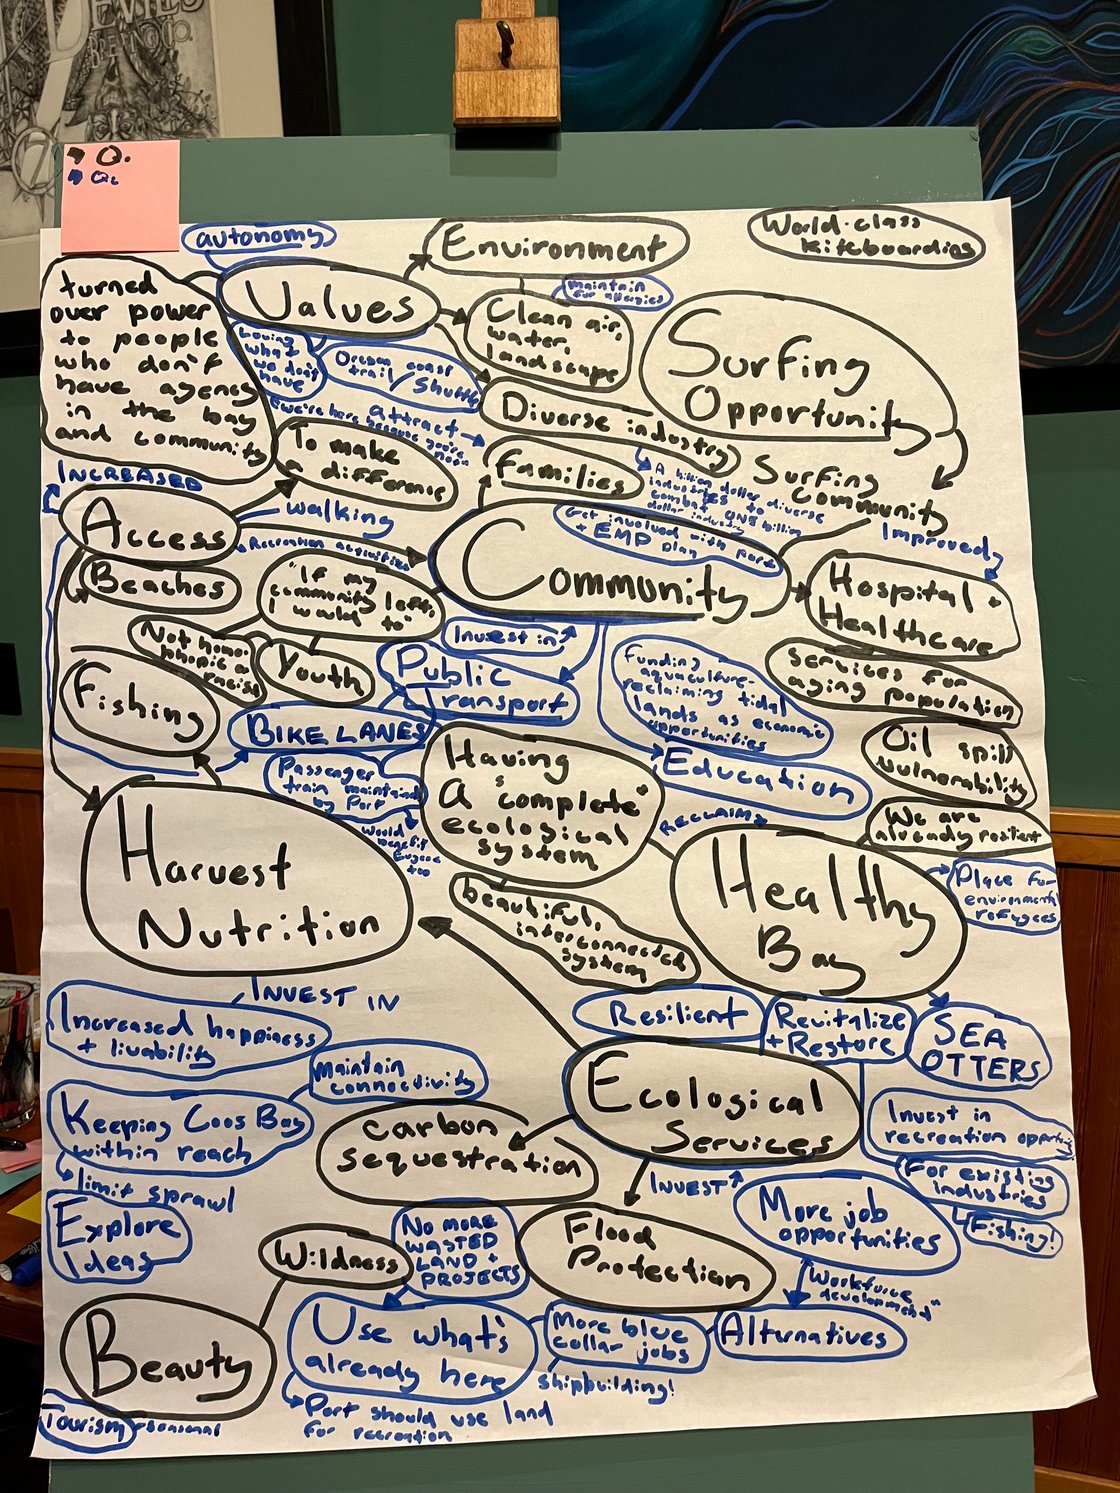 DEVILS
BREWING CO.
→ Q.
→ Q2
autonomy
Environment
World-class
kiteboarding
turned
over power
to people
who don't
have agency
in the bay
and community
Values
maintain
for allergies
Clean air,
water,
landscape
Surfing
Opportunity
Loving
what
we don't
have
Oregon coast
trail / Shuttle
Diverse industry
attract →
we're here because you're
not
To make
a difference
families
A billion dollar diverse
industries to
combat one billion
dollar industry
Surfing
community
INCREASED
Access
walking
Recreation activities
Community
Get involved with port
+ EMP plan
Improved
Hospital +
Healthcare
Beaches
"If my
community left,
I would to"
Invest in
Not homo-
phobic or
racist
Youth
Public
Transport
Funding
aquaculture-
reclaiming tidal
lands as economic
opportunities
services for
aging population
Fishing
BIKE LANES
Oil spill
vulnerability
Passenger
train maintained
by Port
Having
a "complete"
ecological
system
Education
would
benefit
Eugene
too
RECLAIM
We are
already resilient
Harvest
Nutrition
Healthy
Bay
Place for
environmental
refugees
beautiful,
interconnected
system
INVEST IN
Increased happiness
+ livability
Resilient
Revitalize
+ Restore
SEA
OTTERS
maintain
connectivity
Ecological
Services
Keeping Coos Bay
within reach
carbon
sequestration
Invest in
recreation opportunity
limit sprawl
INVEST
For existing
industries
Fishing!
Explore
Ideas
Wildness
NO MORE
WASTED
LAND +
PROJECTS
Flood
Protection
More job
opportunities
Workforce
development"
Beauty
Use what's
already here
More blue
collar jobs
Alternatives
shipbuilding!
Tourism - seasonal
Port should use land
for recreation